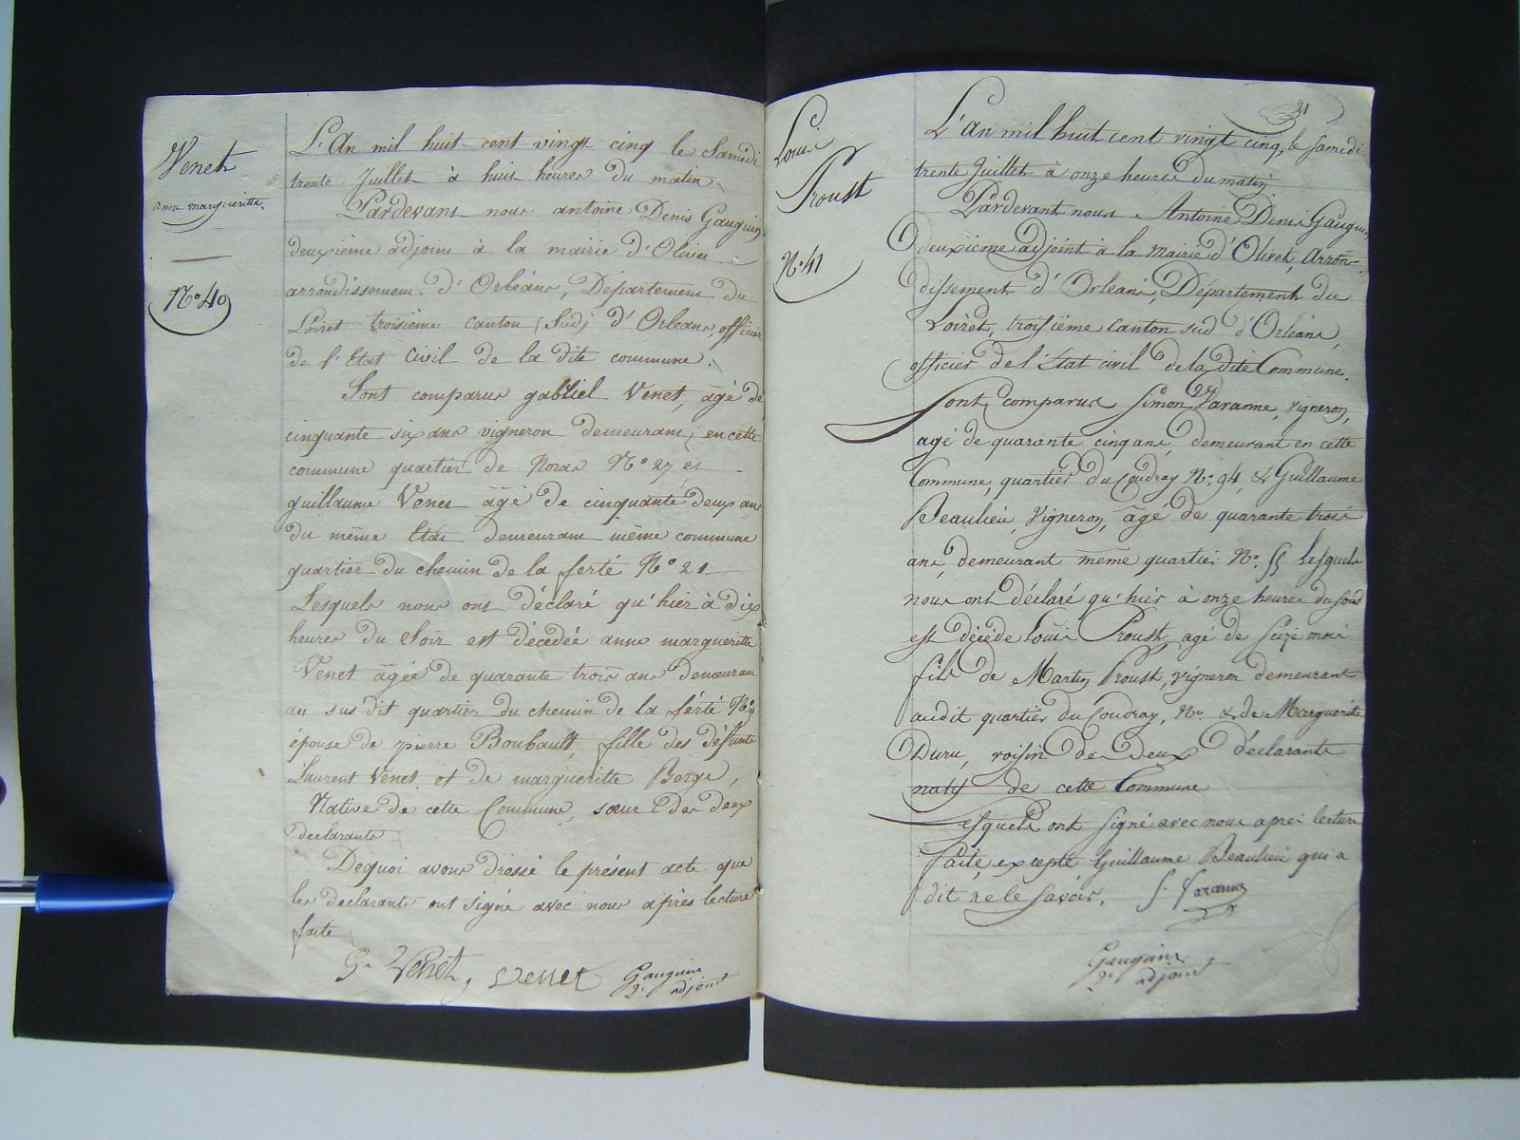 Venet
anne margueritte.
N.° 40
L'An mil huit cent vingt cinq le Samedi
trente Juillet à huit heures du matin,
Pardevant nous antoine Denis Gauguin
deuxième adjoint à la mairie d'Olivet
arrondissement d'Orléans, Département du
Loiret troisième canton (Sud) d'Orleans, officier
de l'Etat civil de la dite commune.
Sont comparus gabriel Venet, âgé de
cinquante six ans vigneron demeurant, en cette
commune quartier de N.° 27 et
guillaume Venet âgé de cinquante deux ans
du même Etat demeurant même commune
quartier du chemin de la ferté N.° 21
Lesquels nous ont déclaré qu'hier à dix
heures du soir est décédée anne margueritte
Venet âgée de quarante trois ans demeurant
au sus dit quartier du chemin de la ferté N.°
épouse de pierre Boubault, fille des défunts
Laurent Venet et de margueritte
Native de cette Commune, sœur des deux
declarants
Dequoi avons dressé le présent acte que
les declarants ont signé avec nous après lecture
faite
G. Venet, Venet Gauguin
2.e adjoint
21
Louis
Proust
N.° 41
L'An mil huit cent vingt cinq, le samedi
trente Juillet à onze heures du matin
Pardevant nous Antoine Denis Gauguin
deuxième adjoint à la Mairie d'Olivet, Arron-
dissement d'Orléans, Département du
Loiret, troisième canton sud d'Orléans,
officier de l'Etat civil de la dite Commune.
Sont comparus Simon Paranne, vigneron,
agé de quarante cinq ans, demeurant en cette
Commune, quartier du Coudray N.° 94, & Guillaume
Beaulieu, Vigneron, âgé de quarante trois
ans, demeurant même quartier N.° 55 Lesquels
nous ont déclaré qu'hier à onze heures du soir
est décédé Louis Proust, agé de seize mois
fils de Martin Proust, vigneron demeurant
audit quartier du Coudray, N.° & de Marguerite
Duru, voisin de deux déclarants
natif de cette Commune
Lesquels ont signé avec nous après lecture
faite, excepté Guillaume Beaulieu qui a
dit ne le savoir. S. Paranne
Gauguin
2.e adjoint